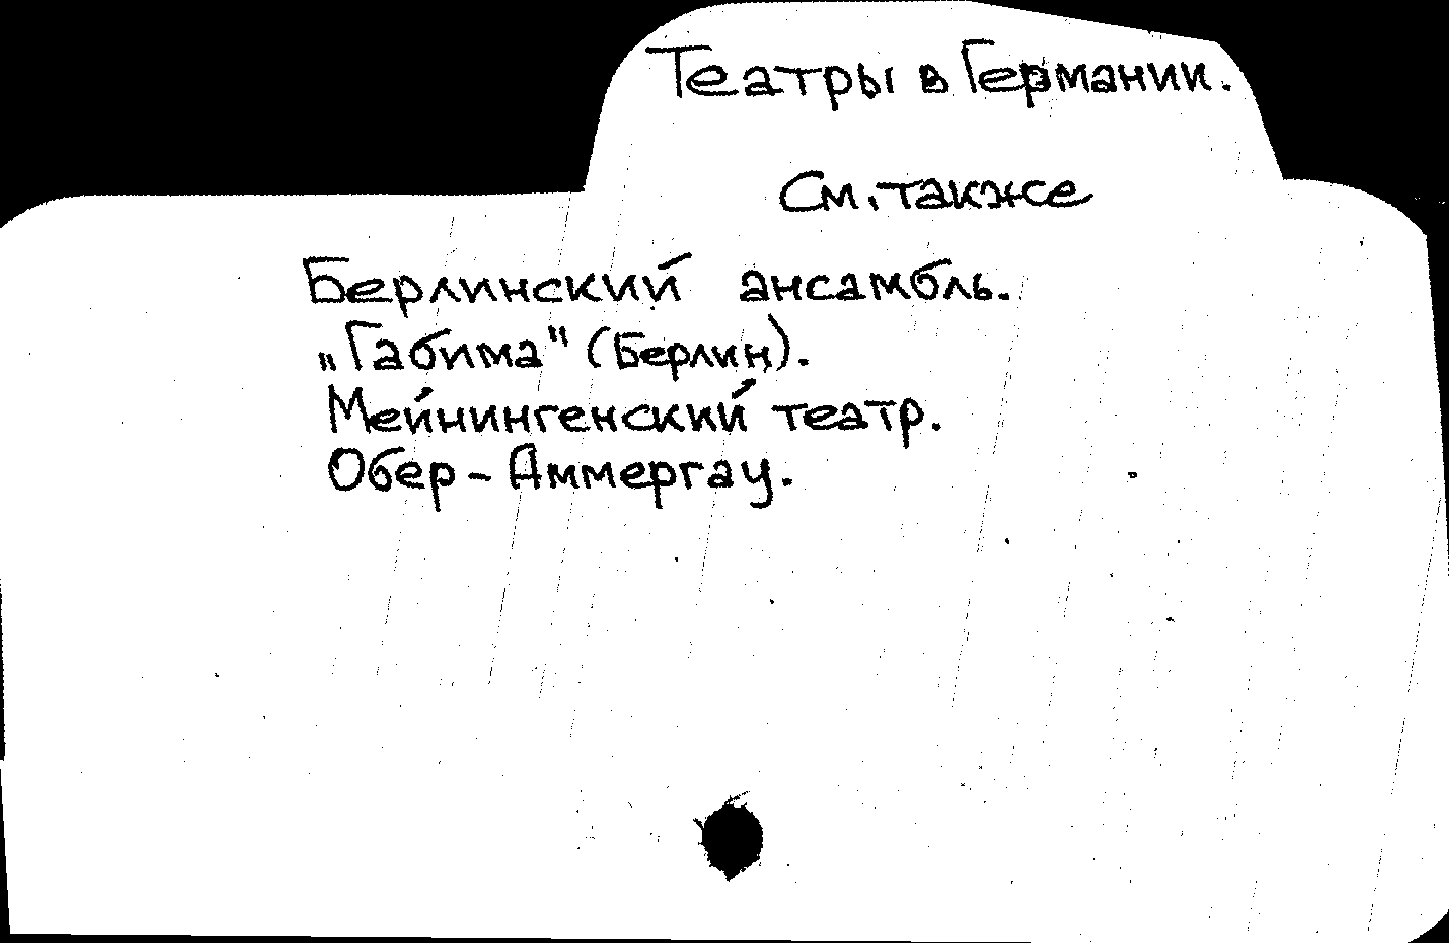 Театры в Германии.
См. также
Берлинский ансамбль.
„Габима" (Берлин).
Мейнингенский театр.
Обер-Аммергау.